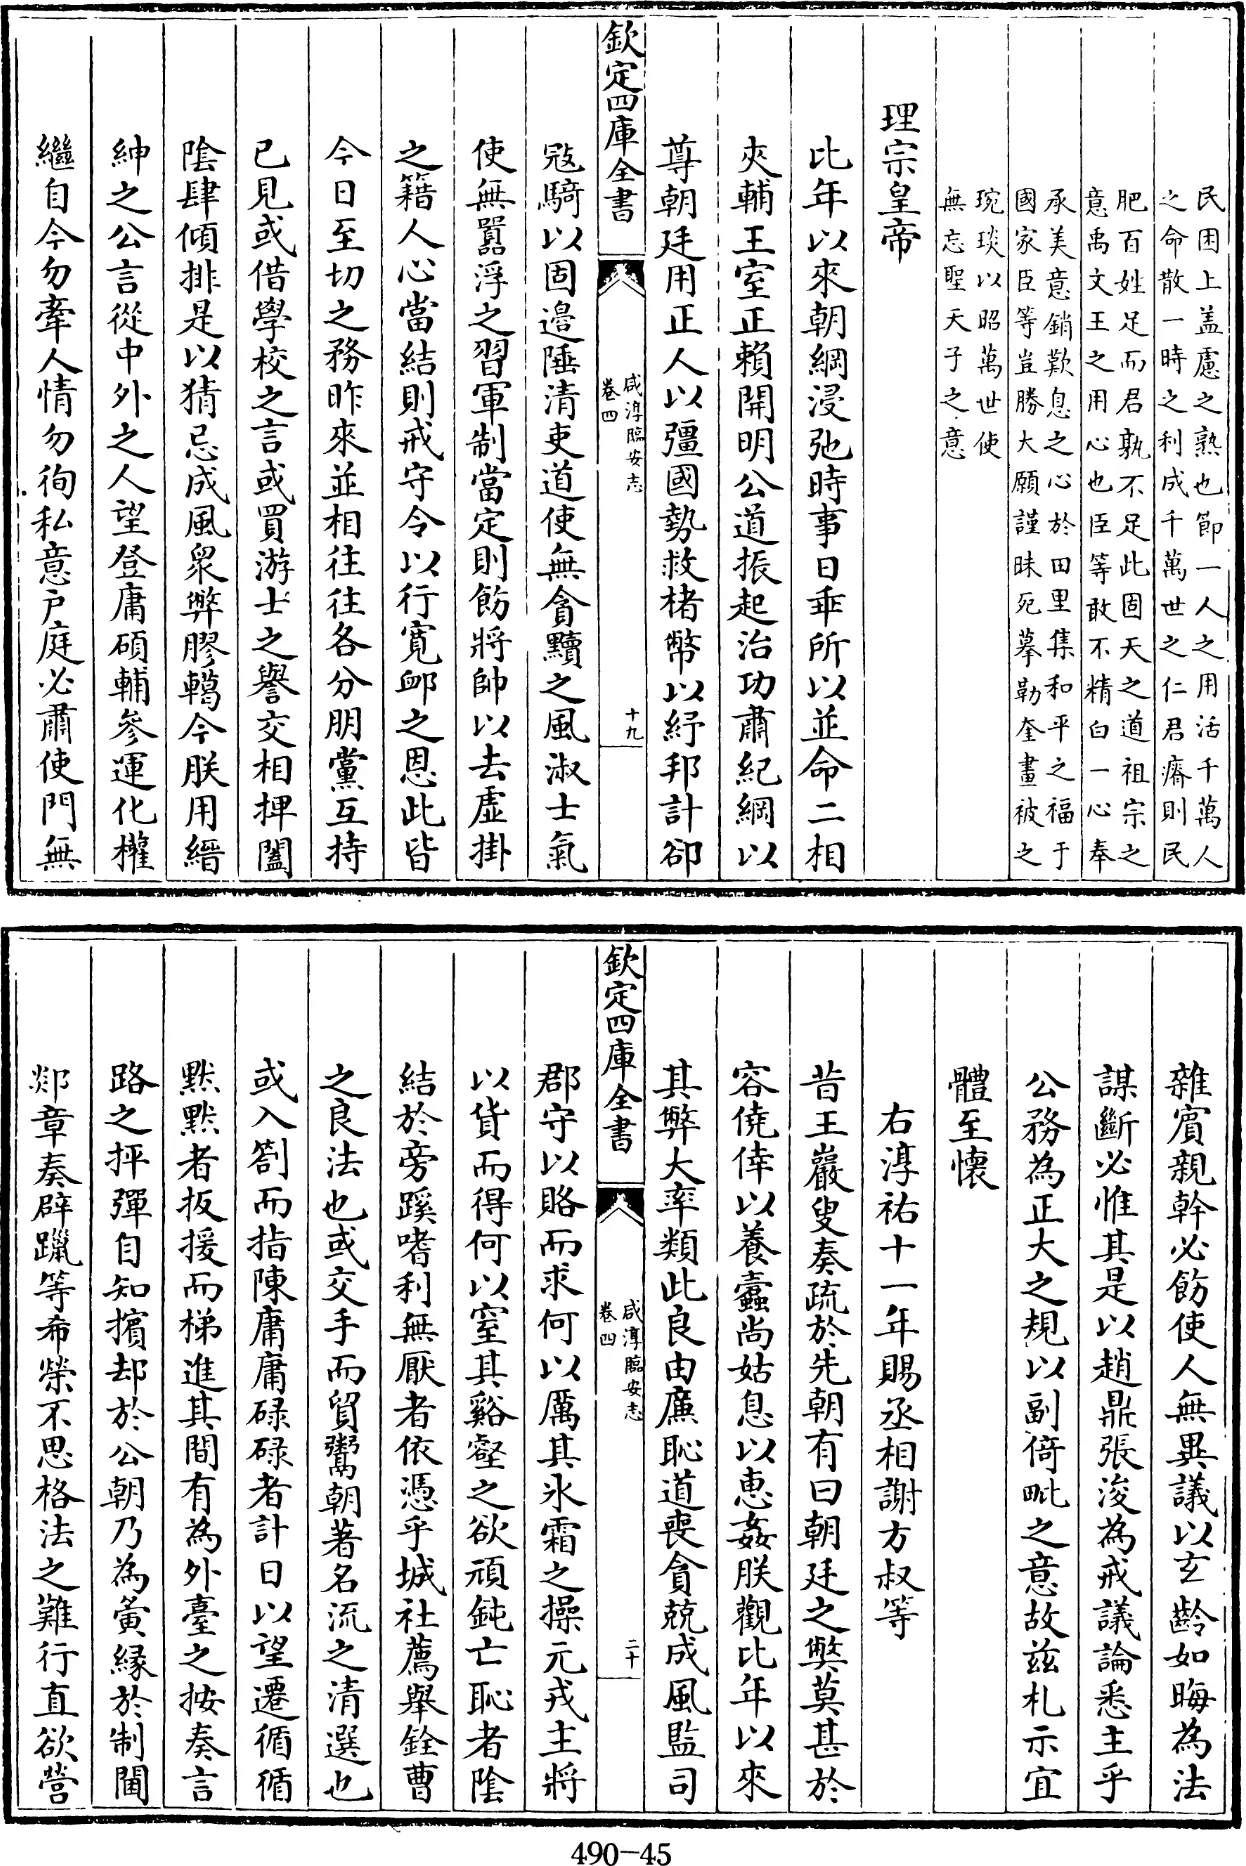 民困上盖慮之熟也節一人之用活千萬人
之命散一時之利成千萬世之仁君瘠則民
肥百姓足而君孰不足此固天之道祖宗之
意禹文王之用心也臣等敢不精白一心奉
承美意銷歎息之心於田里集和平之福于
國家臣等豈勝大願謹昧死摹勒奎畫被之
琬琰以昭萬世使
無忘聖天子之意
理宗皇帝
比年以來朝綱浸弛時事日乖所以並命二相
夾輔王室正賴開明公道振起治功肅紀綱以
尊朝廷用正人以彊國勢救楮幣以紓邦計卻
欽定四庫全書
咸淳臨安志
卷四
十九
寇騎以固邉陲清吏道使無貪黷之風淑士氣
使無囂浮之習軍制當定則飭將帥以去虛掛
之籍人心當結則戒守令以行寛卹之恩此皆
今日至切之務昨來並相往往各分朋黨互持
已見或借學校之言或買游士之譽交相捭闔
陰肆傾排是以猜忌成風衆弊膠轕今朕用縉
紳之公言從中外之人望登庸碩輔參運化權
繼自今勿牽人情勿徇私意户庭必肅使門無
雜賓親幹必飭使人無異議以玄齡如晦為法
謀斷必惟其是以趙鼎張浚為戒議論悉主乎
公務為正大之規以副倚毗之意故兹札示宜
體至懷
右淳祐十一年賜丞相謝方叔等
昔王巖叟奏疏於先朝有曰朝廷之弊莫甚於
容僥倖以養蠹尚姑息以惠姦朕觀比年以來
其弊大率類此良由廉恥道喪貪兢成風監司
欽定四庫全書
咸淳臨安志
卷四
二十
郡守以賂而求何以厲其氷霜之操元戎主將
以貨而得何以窒其谿壑之欲頑鈍亡恥者陰
結於旁蹊嗜利無厭者依憑乎城社薦舉銓曹
之良法也或交手而貿鬻朝著名流之清選也
或入劄而指陳庸庸碌碌者計日以望遷循循
默默者扳援而梯進其間有為外臺之按奏言
路之抨彈自知擯却於公朝乃為夤緣於制閫
郯章奏辟躐等希榮不思格法之難行直欲營
490-45